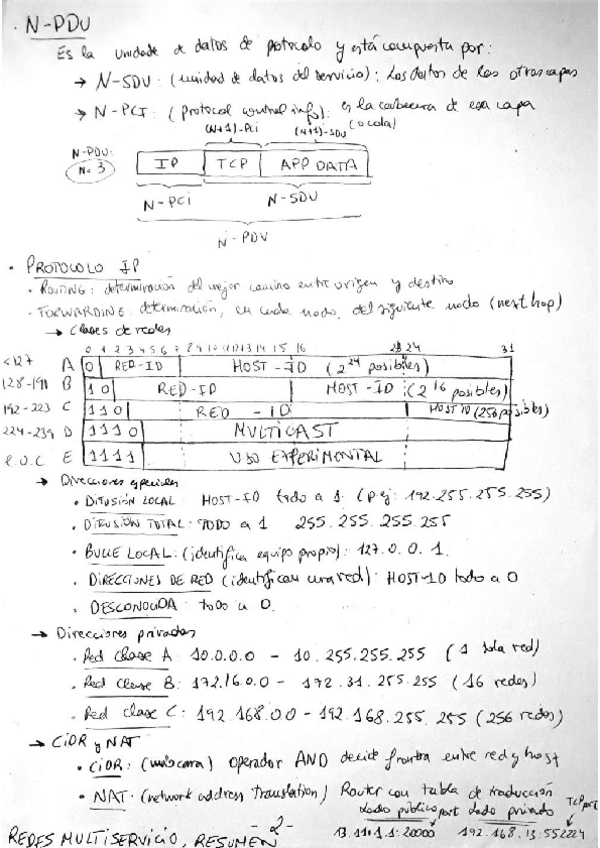 · N-PDU
Es la unidade de datos de protocolo y está compuesta por:
→ N-SDU: (unidad de datos del servicio): Los datos de las otras capas
→ N-PCI: (protocol control info): es la cabecera de esa capa
(o cola)
(N+1)-PCi (N+1)-SDU
N-PDU:
N=3
IP TCP APP DATA
N-PCi N-SDU
N-PDU
· PROTOCOLO IP
· ROUTING: determinación del mejor camino entre origen y destino
· FORWARDING: determinación, en cada nodo, del siguiente nodo (next hop)
→ Clases de redes
0 1 2 3 4 5 6 7 8 9 10 11 12 13 14 15 16 23 24 31
<127 A 0 RED-ID HOST-ID (2^24 posibles)
128-191 B 1 0 RED-ID HOST-ID (2^16 posibles)
192-223 C 1 1 0 RED-ID HOST ID (256 posibles)
224-239 D 1 1 1 0 MULTICAST
E 1 1 1 1 USO EXPERIMENTAL
→ Direcciones especiales
· DIFUSIÓN LOCAL: HOST-ID todo a 1. (p.ej: 192.255.255.255)
· DIFUSIÓN TOTAL: TODO a 1 255.255.255.255
· BUCLE LOCAL: (identifica equipo propio): 127.0.0.1.
· DIRECCIONES DE RED (identifican una red): HOST-ID todo a 0
· DESCONOCIDA: todo a 0.
→ Direcciones privadas
· Red clase A: 10.0.0.0 - 10.255.255.255 (1 sola red)
· Red clase B: 172.16.0.0 - 172.31.255.255 (16 redes)
· Red clase C: 192.168.0.0 - 192.168.255.255 (256 redes)
→ CiDR y NAT
· CiDR: (máscara) operador AND decide frontra entre red y host
· NAT: (network address translation) Router con tabla de traducción
lado público port lado privado TCP port
13.110.1.1:20000 192.168.13:552224
REDES MULTISERVICIO, RESUMEN -2-